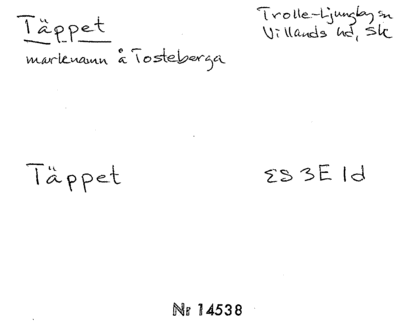 Täppet
Trolle-Ljungby sn
Villands hd, Sk
marknamn å Tosteberga
Täppet
ES 3E 1d
Nr 14538